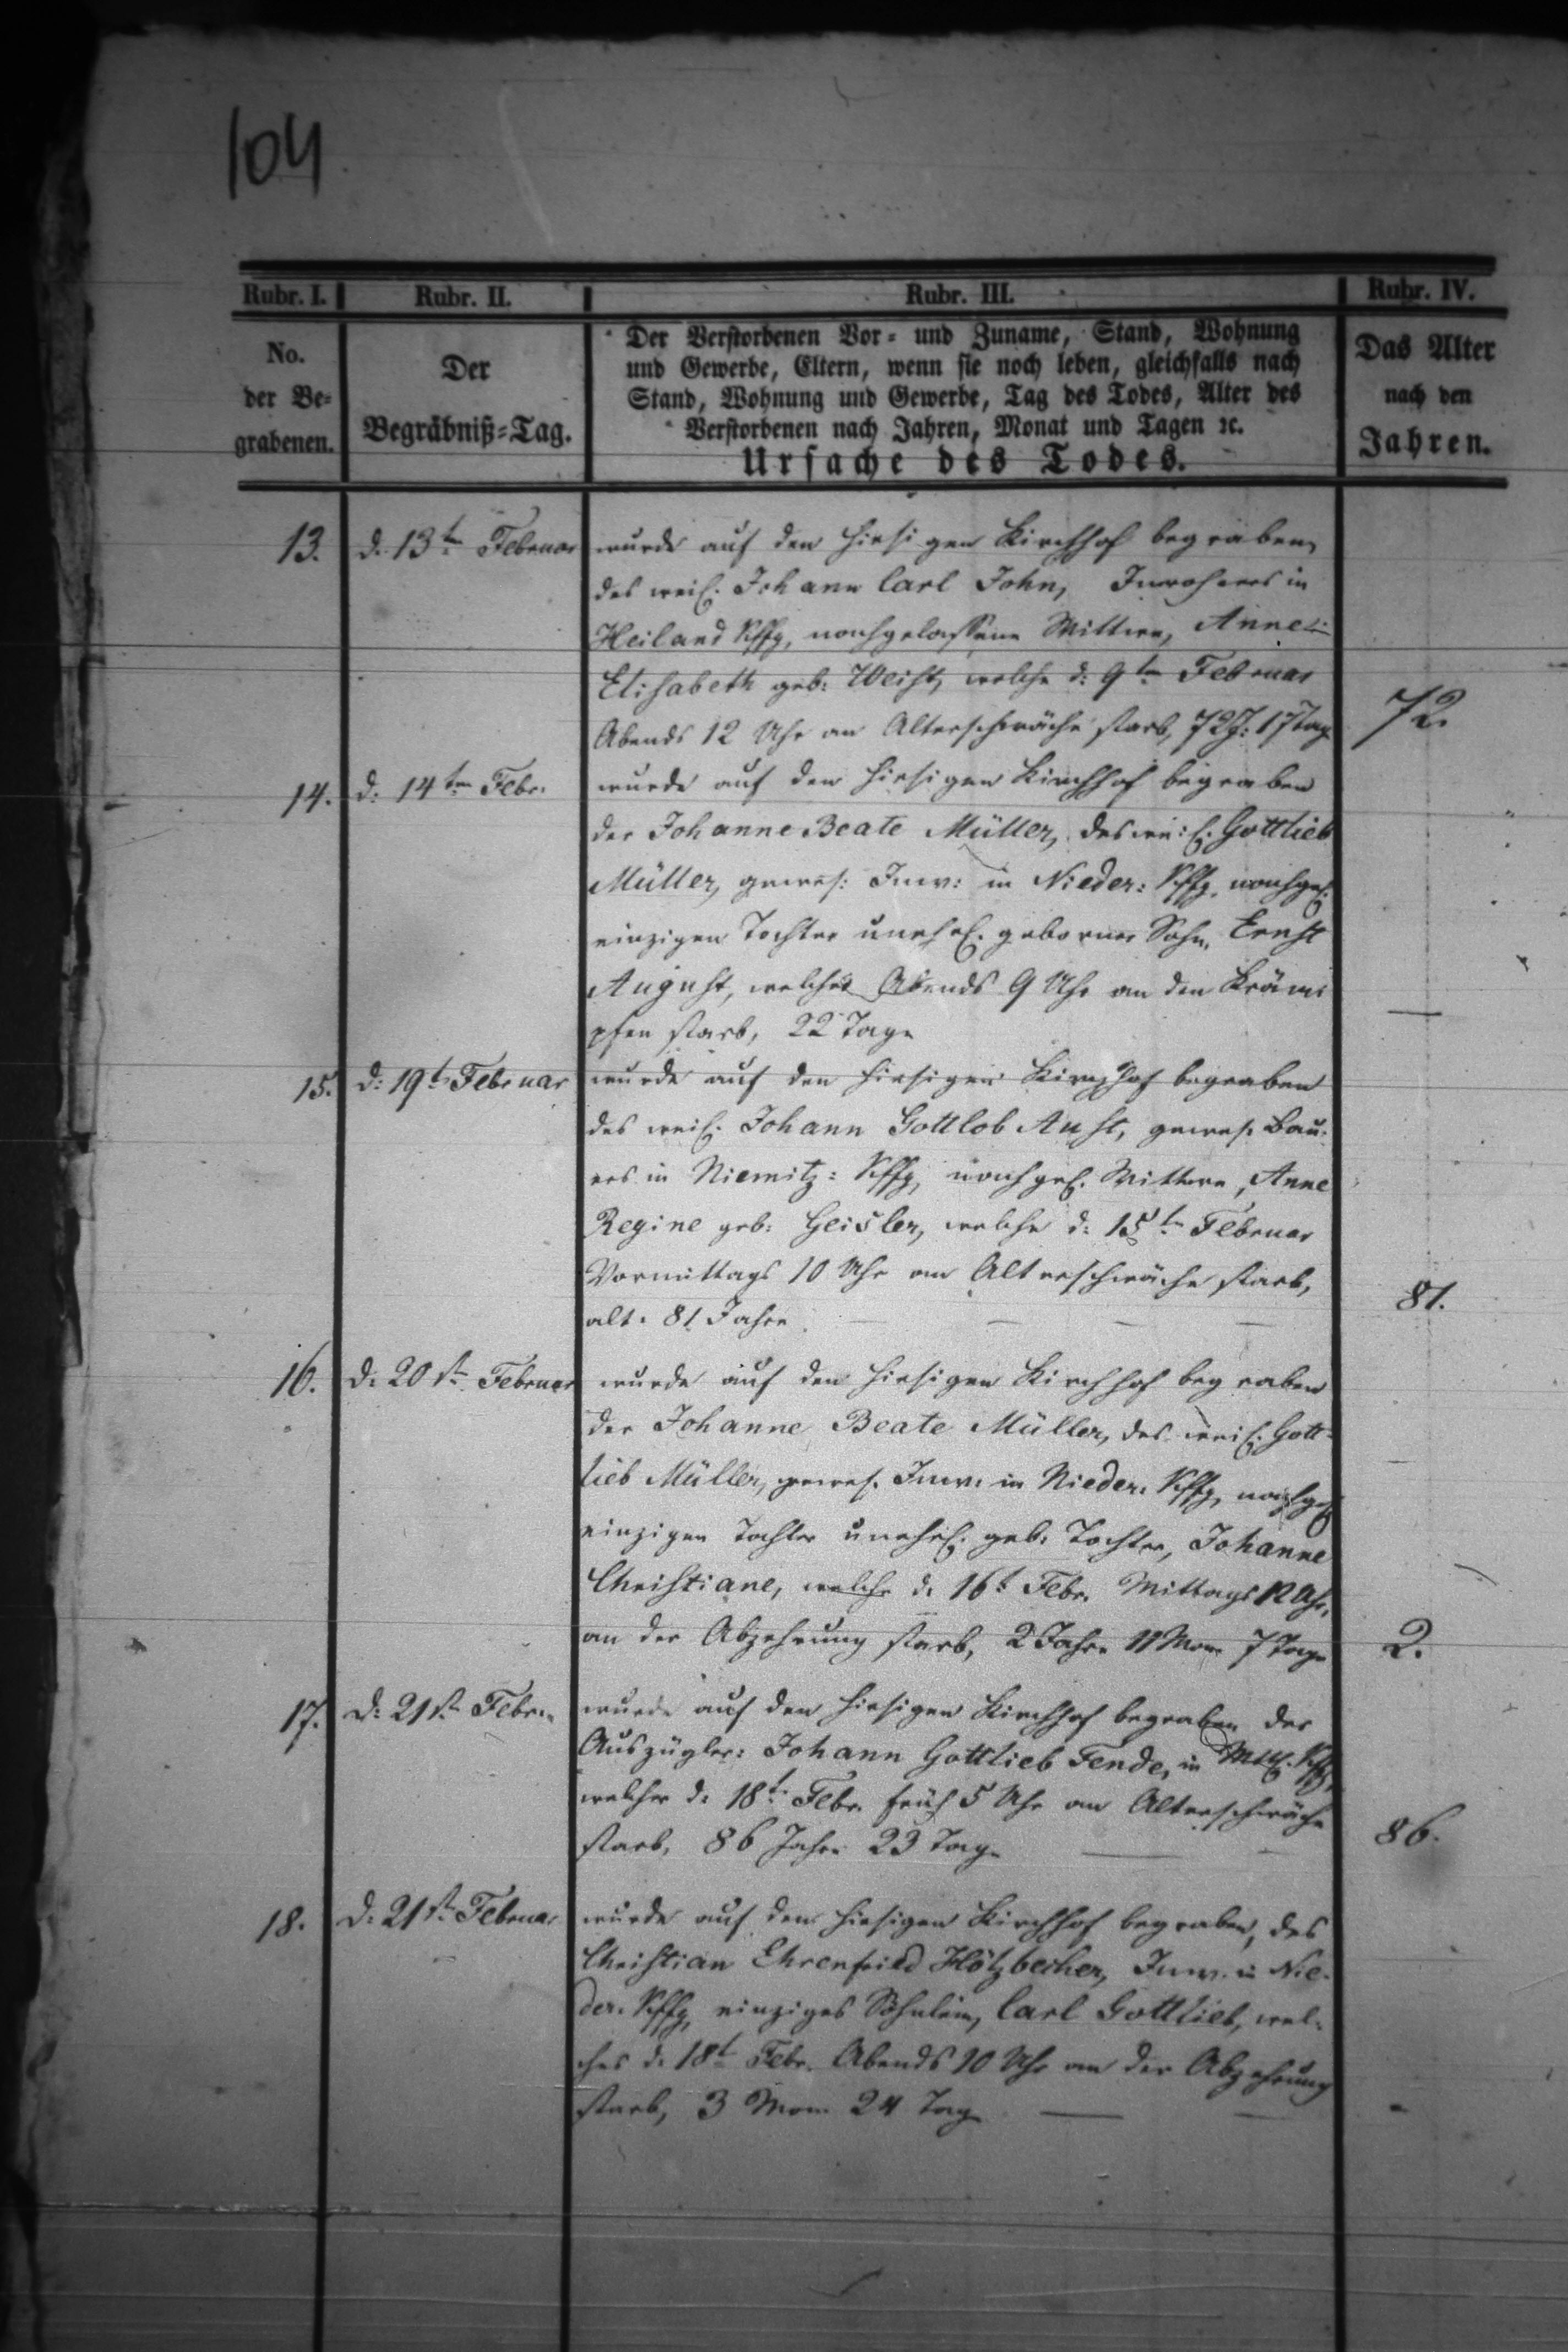 104
Rubr. I. Rubr. II. Rubr. III. Rubr. IV.
No.
der Be=
grabenen.
Der
Begräbniß=Tag.
Der Verstorbenen Vor= und Zuname, Stand, Wohnung
und Gewerbe, Eltern, wenn sie noch leben, gleichfalls nach
Stand, Wohnung und Gewerbe, Tag des Todes, Alter des
Verstorbenen nach Jahren, Monat und Tagen ꝛc.
Ursache des Todes.
Das Alter
nach den
Jahren.
13. d. 13t. Februar wurde auf den hiesigen Kirchhof begraben,
des weil. Johann Carl John, Inwohners in
Heiland Kffg, nachgelaßene Wittwe, Anne
Elisabeth geb: Weist, welche d: 9t. Februar
Abends 12 Uhr an Altersschwäche starb, 72 J: 17 Tag 72.
14. d: 14ten Febr. wurde auf den hiesigen Kirchhof begraben
der Johanne Beate Müller, des weil. Gottlieb
Müller, gewes: Inw: in Nieder: Kffg, nachgel.
einzigen Tochter unehel. geborner Sohn, Ernst
August, welcher Abends 9 Uhr an den Kräm=
pfen starb, 22 Tage —
15. d: 19t. Februar wurde auf den hiesigen Kirchhof begraben
des weil. Johann Gottlob Aust, gewes. Bau=
ers in Niemitz: Kffg, nachgel. Wittwe, Anne
Regine geb: Geisler, welche d: 15t. Februar
Vormittags 10 Uhr an Altersschwäche starb,
alt: 81 Jahre 81.
16. d: 20st. Februar wurde auf den hiesigen Kirchhof begraben
der Johanne Beate Müller, des weil. Gott=
lieb Müller, gewes. Inw. in Nieder. Kffg, nachgel.
einzigen Tochter unehel. geb: Tochter, Johanne
Christiane, welche d: 16t Febr. Mittags 12 Uhr,
an der Abzehrung starb, 2 Jahre 11 Mon. 7 Tage 2.
17. d: 21st. Febr. wurde auf den hiesigen Kirchhof begraben der
Auszügler: Johann Gottlieb Fende, in Kffg,
welcher d: 18t. Febr. früh 5 Uhr an Altersschwäche
starb, 86 Jahre 23 Tage — 86.
18. d: 21st. Februar wurde auf den hiesigen Kirchhof begraben, des
Christian Ehrenfried Hötzbecher, Inw. in Nie=
der. Kffg, einziges Söhnlein, Carl Gottlieb, wel=
ches d: 18t Febr. Abends 10 Uhr an der Abzehrung
starb, 3 Mon. 24 Tag —